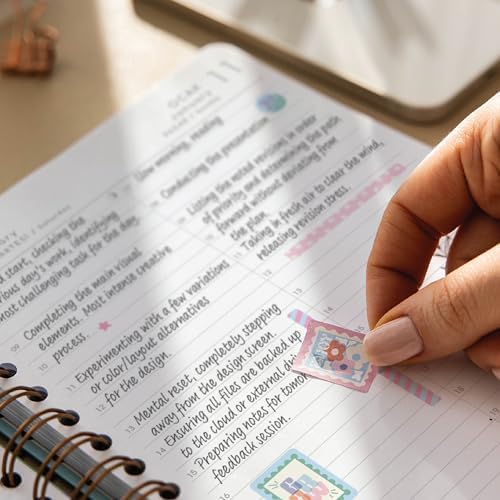 11
OCAK
Slow morning, reading
Conducting the presentation
Listing the noted revisions in order
of priority and determining the path
forward without deviating from
the plan.
Taking in fresh air to clear the mind,
releasing revision stress.
12
start, checking the
day's work, identifying
most challenging task for the day.
09
Completing the main visual
10
elements. Most intense creative
process.
11
Experimenting with a few variations
12
or color/layout alternatives
for the design.
13
Mental reset, completely stepping
14
away from the design screen.
Ensuring all files are backed up
to the cloud or external
15
Preparing notes for
feedback session.
16